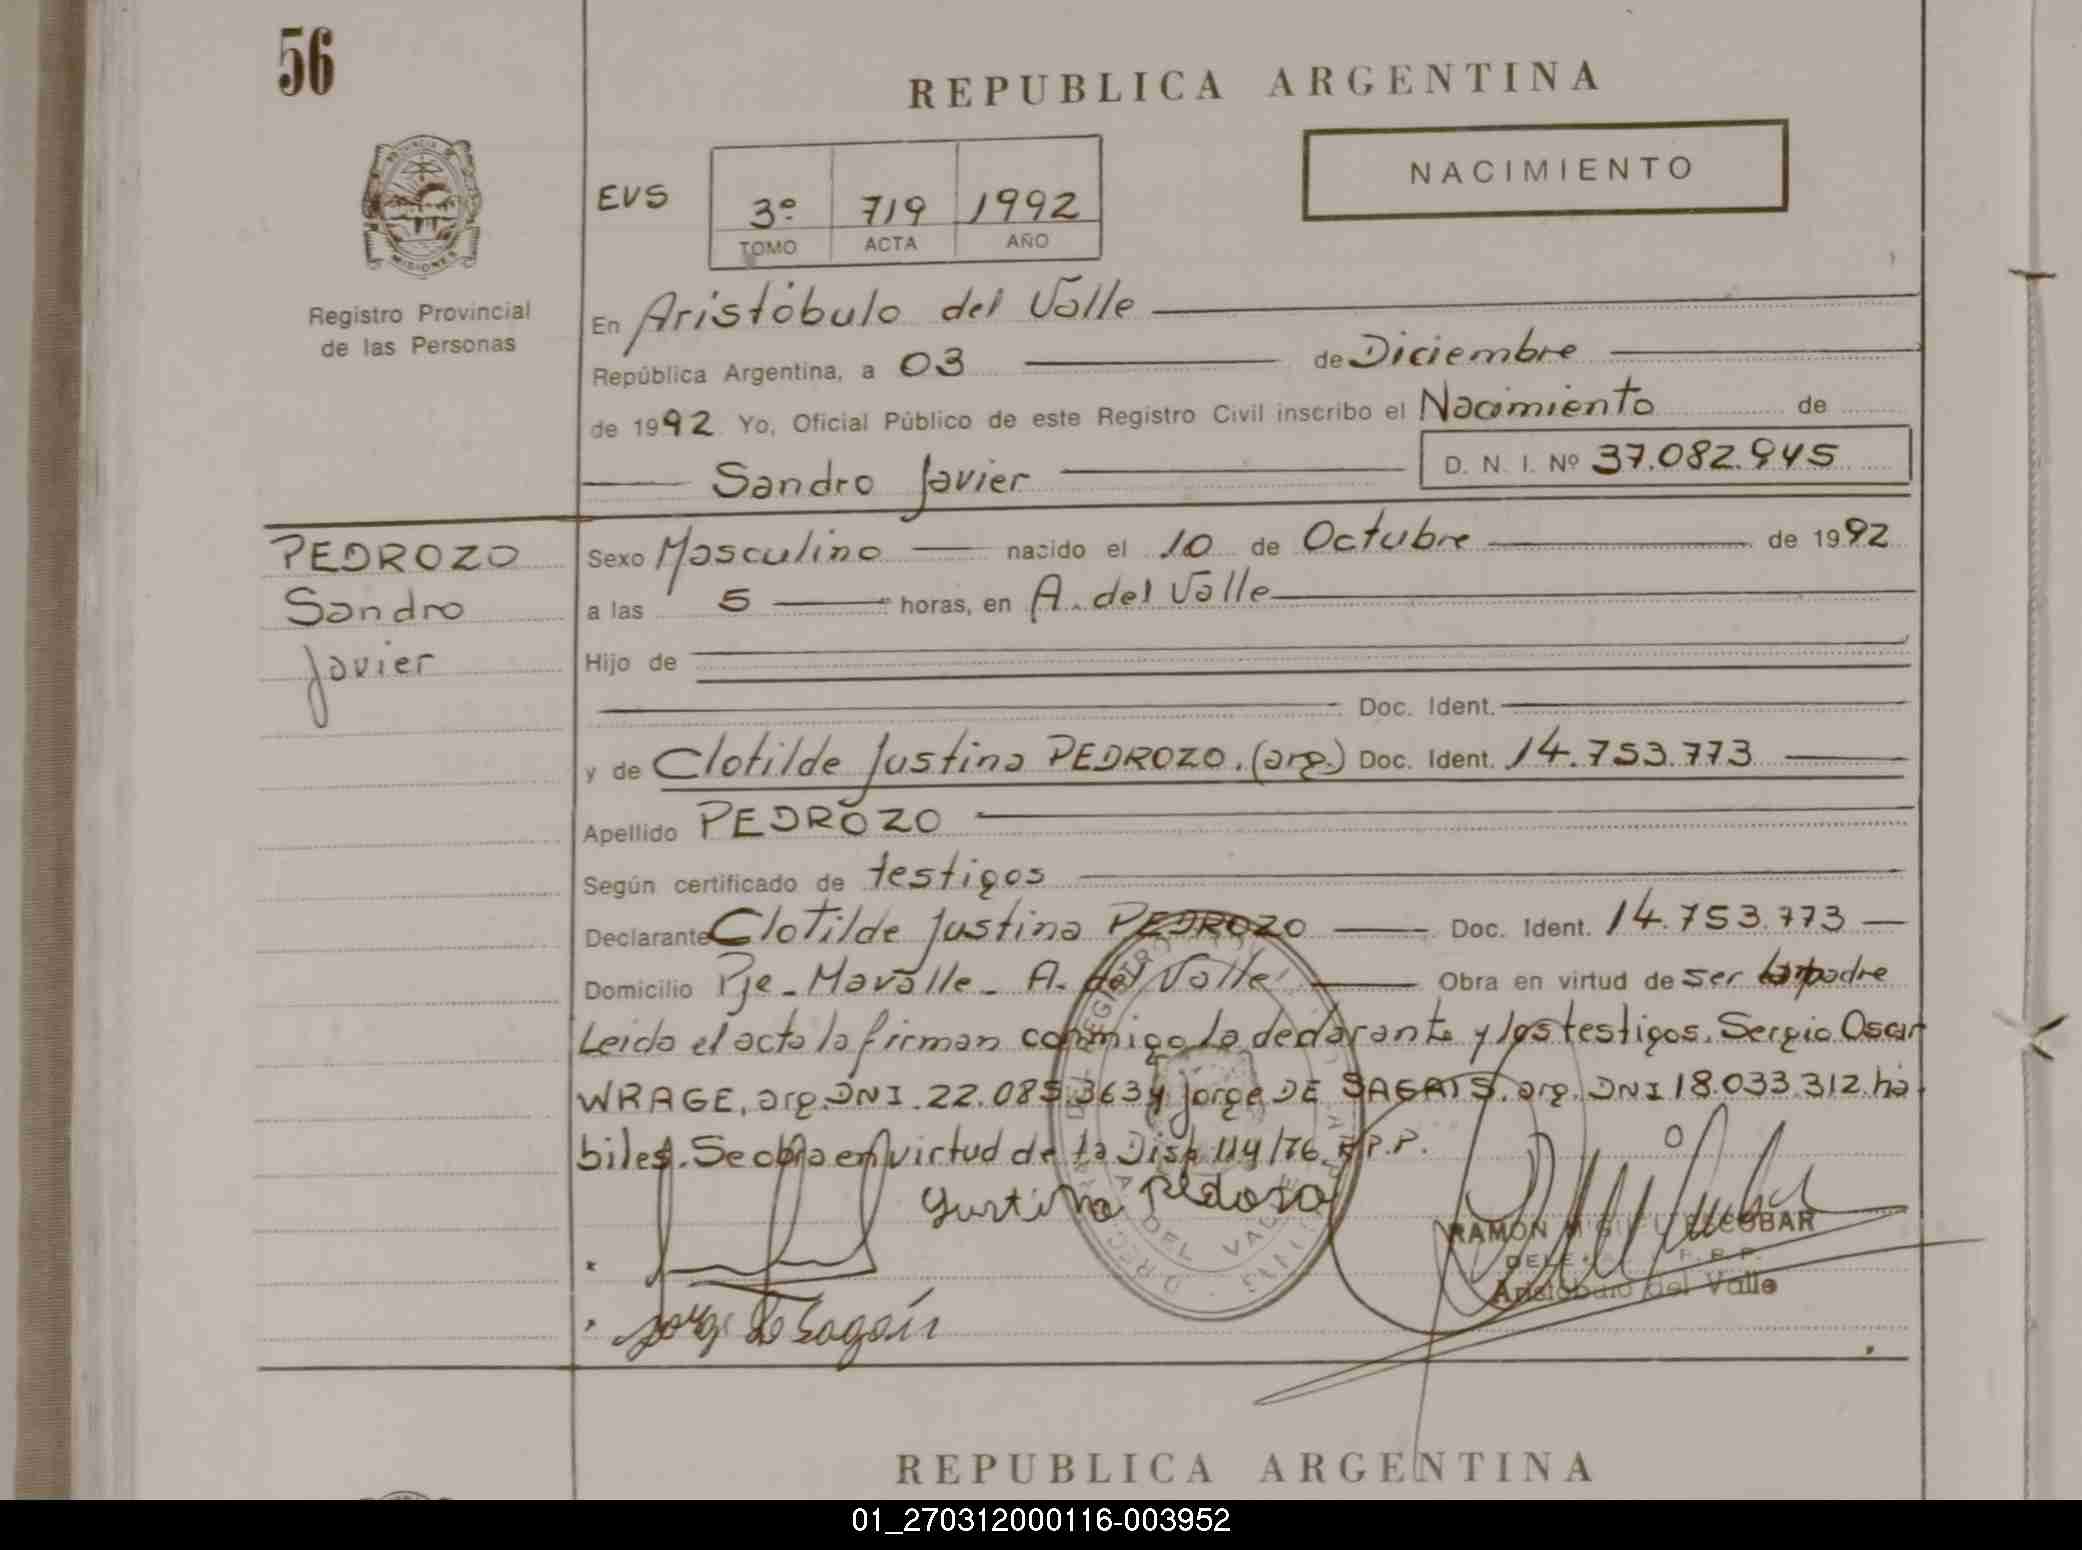 56
REPUBLICA ARGENTINA
NACIMIENTO
EVS
3º 719 1992
TOMO ACTA AÑO
PROVINCIA DE MISIONES
Registro Provincial
de las Personas
En Aristóbulo del Valle
República Argentina, a 03 de Diciembre
de 1992 Yo, Oficial Público de este Registro Civil inscribo el Nacimiento de
Sandro Javier D. N. I. Nº 37.082.945
PEDROZO
Sandro
Javier
Sexo Masculino nacido el 10 de Octubre de 1992
a las 5 horas, en A. del Valle
Hijo de
Doc. Ident.
y de Clotilde Justina PEDROZO. (arg.) Doc. Ident. 14.753.773
Apellido PEDROZO
Según certificado de testigos
Declarante Clotilde Justina PEDROZO Doc. Ident. 14.753.773
Domicilio Pje - Mavalle - A. del Valle Obra en virtud de ser
Leida el acta la firman conmigo la declarante y los testigos. Sergio Oscar
WRAGE, arg. DNI. 22.085.363 y Jorge DE SAGAIS. arg. DNI 18.033.312. há
biles. Se obra en virtud de la Disp. 114/76 R.P.P.
Justina Pedroso
RAMON MIGUEL ESCOBAR
R. P. P.
Aristobulo del Valle
REPUBLICA ARGENTINA
01_270312000116-003952